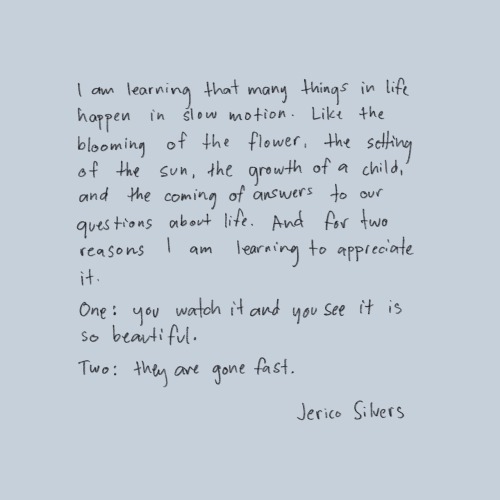 I am learning that many things in life
happen in slow motion. Like the
blooming of the flower, the setting
of the sun, the growth of a child,
and the coming of answers to our
questions about life. And for two
reasons I am learning to appreciate
it.
One: you watch it and you see it is
so beautiful.
Two: they are gone fast.
Jerico Silvers